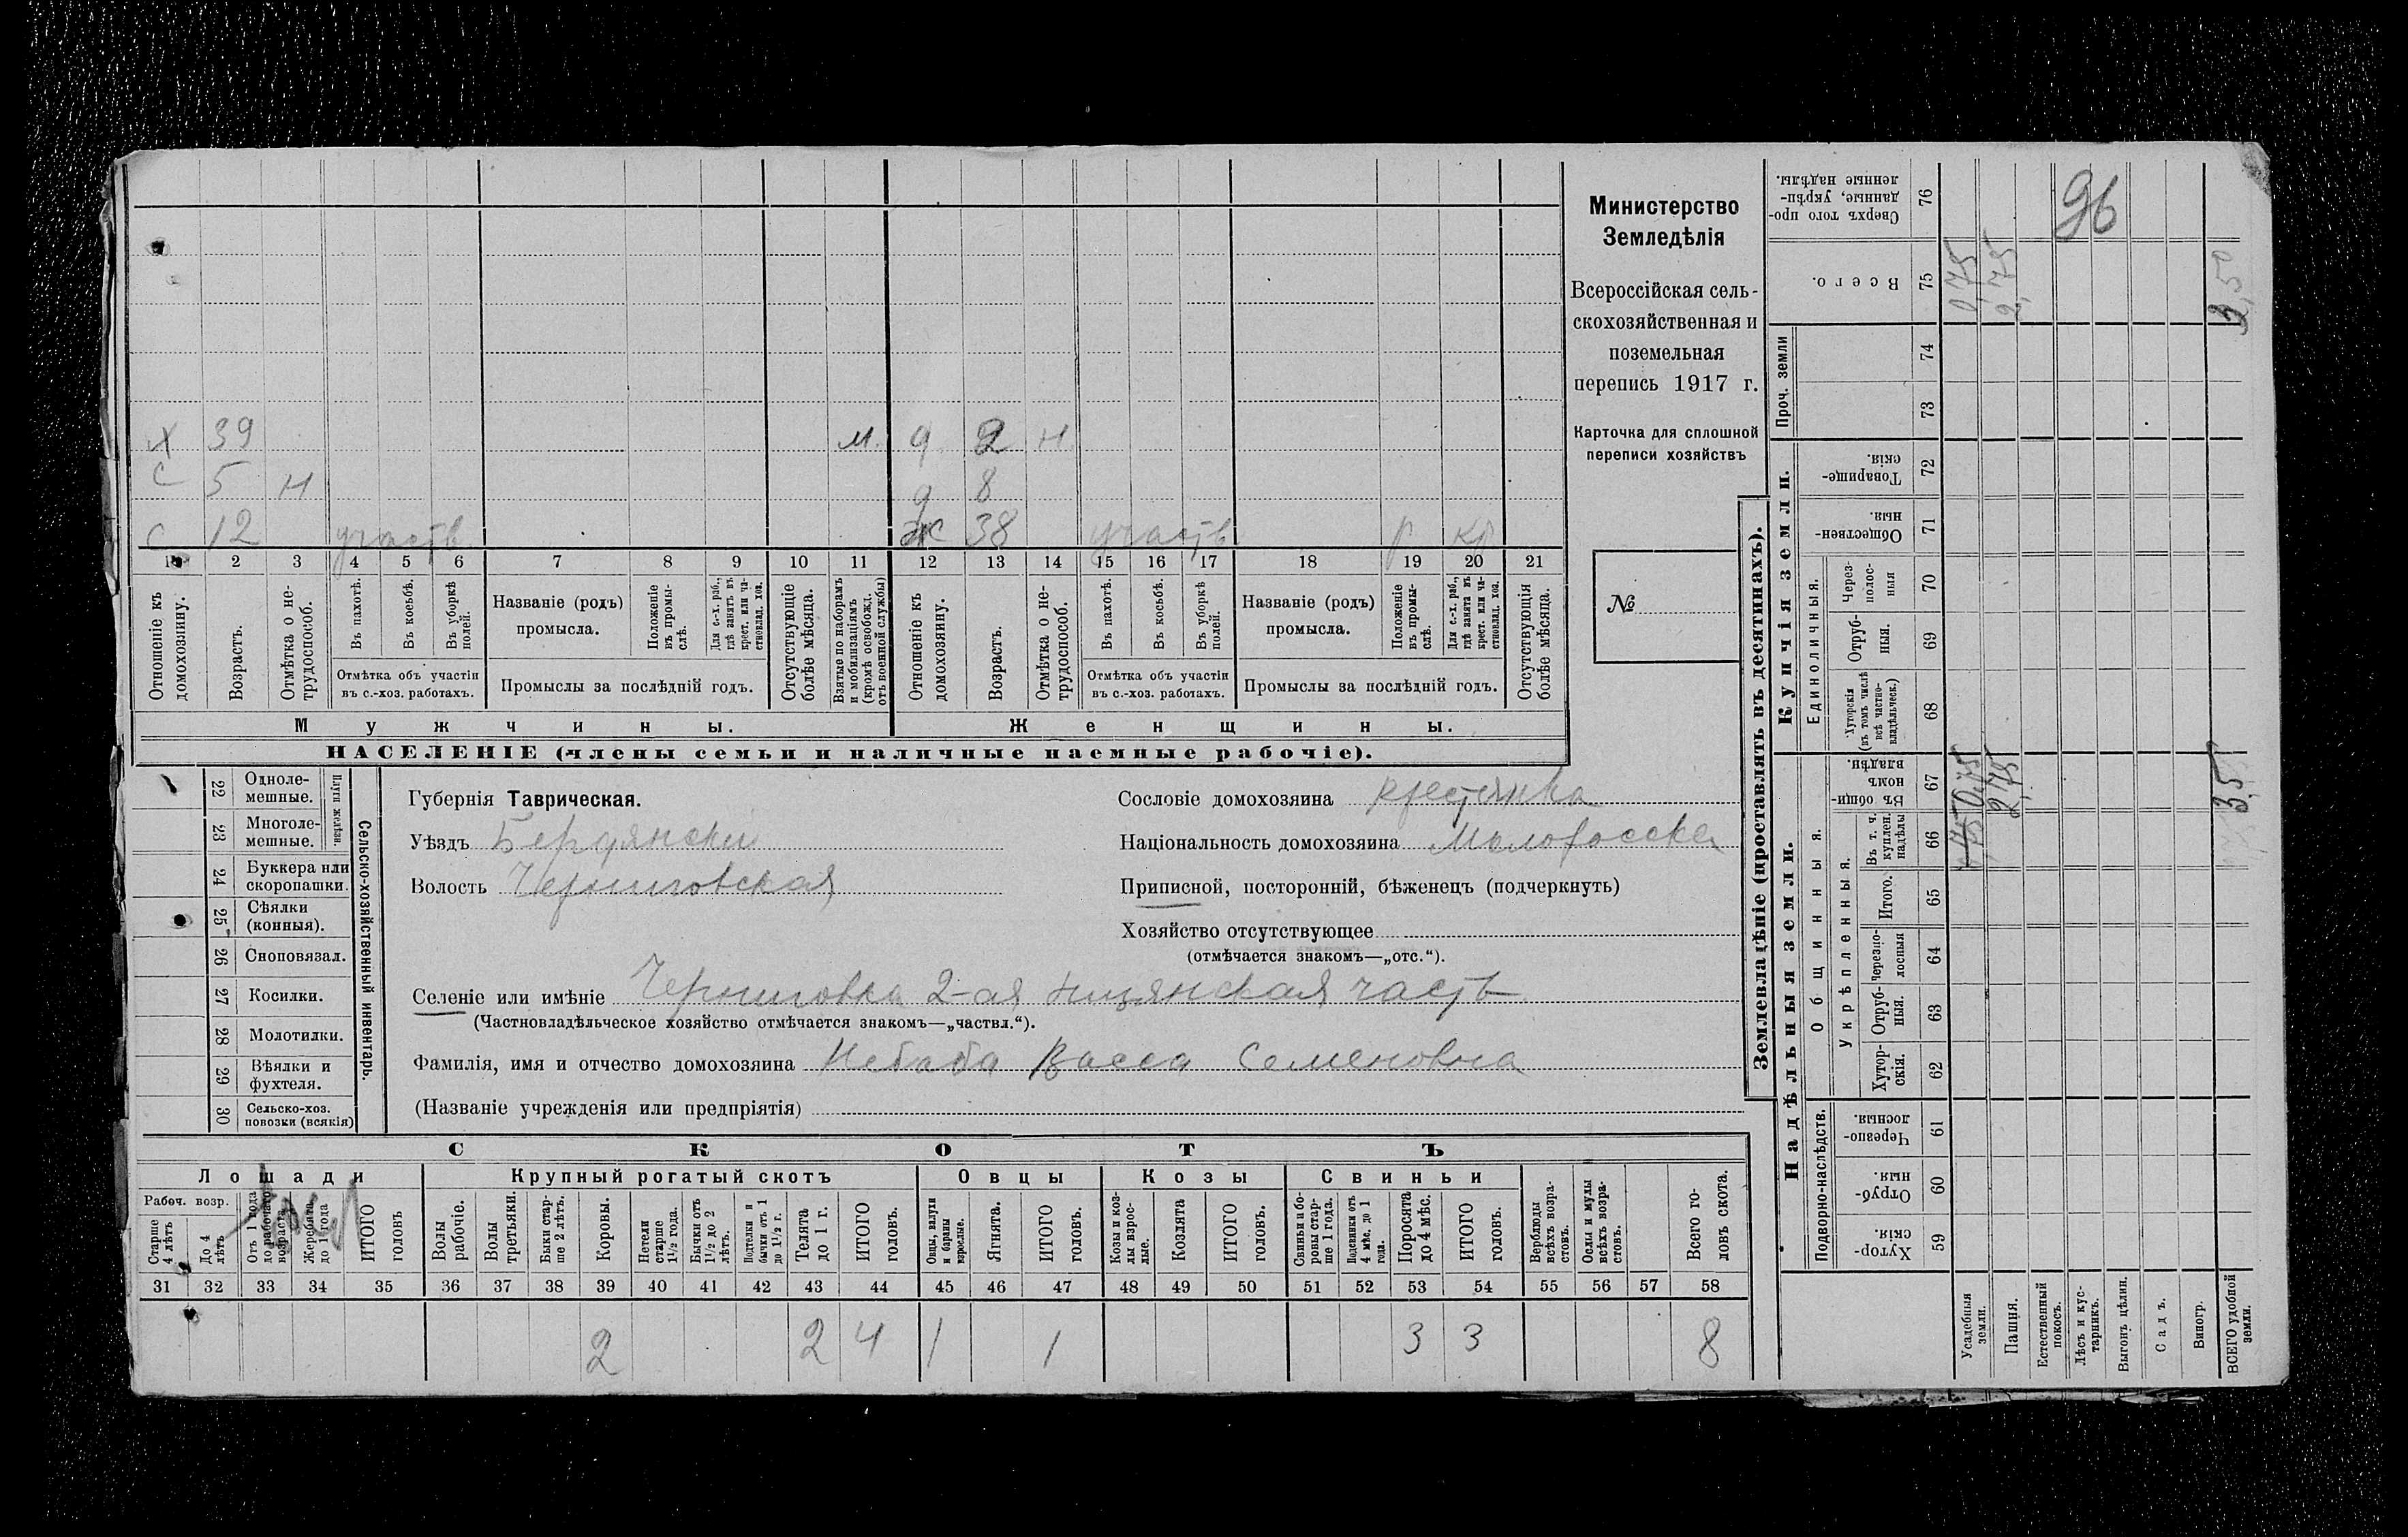 96
Министерство
Земледѣлія
Всероссійская сель-
скохозяйственная и
поземельная
перепись 1917 г.
Карточка для сплошной
переписи хозяйствъ
№
х 39 м. д 2 н
с 5 н д 8
с 12 участв. ж 38 участв р кр
1 2 3 4 5 6 7 8 9 10 11 12 13 14 15 16 17 18 19 20 21
Отношеніе къ домохозяину.
Возрастъ.
Отмѣтка о не-трудоспособ.
Въ пахотѣ.
Въ косьбѣ.
Въ уборкѣ полей.
Отмѣтка объ участіи
въ с.-хоз. работахъ.
Названіе (родъ)
промысла.
Положеніе въ промы-слѣ.
Для с.-х. раб., гдѣ занятъ въ крест. или ча-стновлад. хоз.
Промыслы за послѣдній годъ.
Отсутствующіе болѣе мѣсяца.
Взятые по наборамъ и мобилизаціямъ (кромѣ освобожд. отъ военной службы)
Отношеніе къ домохозяину.
Возрастъ.
Отмѣтка о не-трудоспособ.
Въ пахотѣ.
Въ косьбѣ.
Въ уборкѣ полей.
Отмѣтка объ участіи
въ с.-хоз. работахъ.
Названіе (родъ)
промысла.
Положеніе въ промы-слѣ.
Для с.-х. раб., гдѣ занята въ крест. или ча-стновлад. хоз.
Промыслы за послѣдній годъ.
Отсутствующія болѣе мѣсяца.
Мужчины.
Женщины.
НАСЕЛЕНІЕ (члены семьи и наличные наемные рабочіе).
22 Одноле-мешные.
23 Многоле-мешные.
Плуги желѣзн.
24 Буккера или скоропашки.
25 Сѣялки (конныя).
26 Сноповязал.
27 Косилки.
28 Молотилки.
29 Вѣялки и фухтеля.
30 Сельско-хоз. повозки (всякія)
Сельско-хозяйственный инвентарь.
Губернія Таврическая.
Уѣздъ Бердянски
Волость Черниговская
Сословіе домохозяина крестянка
Національность домохозяина Малоросска
Приписной, посторонній, бѣженецъ (подчеркнуть)
Хозяйство отсутствующее
(отмѣчается знакомъ—„отс.“).
Селеніе или имѣніе Черниговка 2-ая часть
(Частновладѣльческое хозяйство отмѣчается знакомъ—„частвл.“).
Фамилія, имя и отчество домохозяина Небаба Васса Семеновна
(Названіе учрежденія или предпріятія)
СКОТЪ
Лошади
Крупный рогатый скотъ
Овцы
Козы
Свиньи
Рабоч. возр.
Старше 4 лѣтъ
До 4 лѣтъ
Отъ 1 года до рабочаго возраста
Жеребята до 1 года
ИТОГО головъ
Волы рабочіе.
Волы третьяки.
Быки стар-ше 2 лѣтъ.
Коровы.
Нетели старше 1½ года.
Бычки отъ 1½ до 2 лѣтъ.
Подтелки и бычки отъ 1 до 1½ г.
Телята до 1 г.
ИТОГО головъ.
Овцы, валухи и бараны взрослые.
Ягнята.
ИТОГО головъ.
Козы и коз-лы взрос-лые.
Козлята
ИТОГО головъ.
Свиньи и бо-ровы стар-ше 1 года.
Подсвинки отъ 4 мѣс. до 1 года.
Поросята до 4 мѣс.
ИТОГО головъ.
Верблюды всѣхъ возра-стовъ.
Ослы и мулы всѣхъ возра-стовъ.
Всего го-ловъ скота.
31 32 33 34 35 36 37 38 39 40 41 42 43 44 45 46 47 48 49 50 51 52 53 54 55 56 57 58
2 2 4 1 1 3 3 8
Землевладѣніе (проставлять въ десятинахъ).
Надѣльныя земли.
Купчія земли.
Проч. земли
Подворно-наслѣдств.
Общинныя.
Укрѣпленныя.
Единоличныя.
Сверхъ того про-данные, укрѣп-ленные надѣлы. 76
Всего. 75
74
73
Товарище-скія. 72
Обществен-ныя. 71
Через-полос-ныя 70
Отруб-ныя. 69
Хуторскія (въ томъ числѣ всѣ частно-владѣльческ.) 68
Въ общин-номъ владѣн. 67
Въ т. ч. куплен. надѣлы 66
Итого. 65
Черезпо-лосныя 64
Отруб-ныя. 63
Хутор-скія. 62
Черезпо-лосныя. 61
Отруб-ныя. 60
Хутор-скія. 59
Усадебныя земли. 0,75 0,75
Пашня. 2,75 2,75
Естественный покосъ.
Лѣсъ и кус-тарникъ.
Выгонъ цѣлин.
Садъ.
Виногр.
ВСЕГО удобной земли. 3,5 3,50